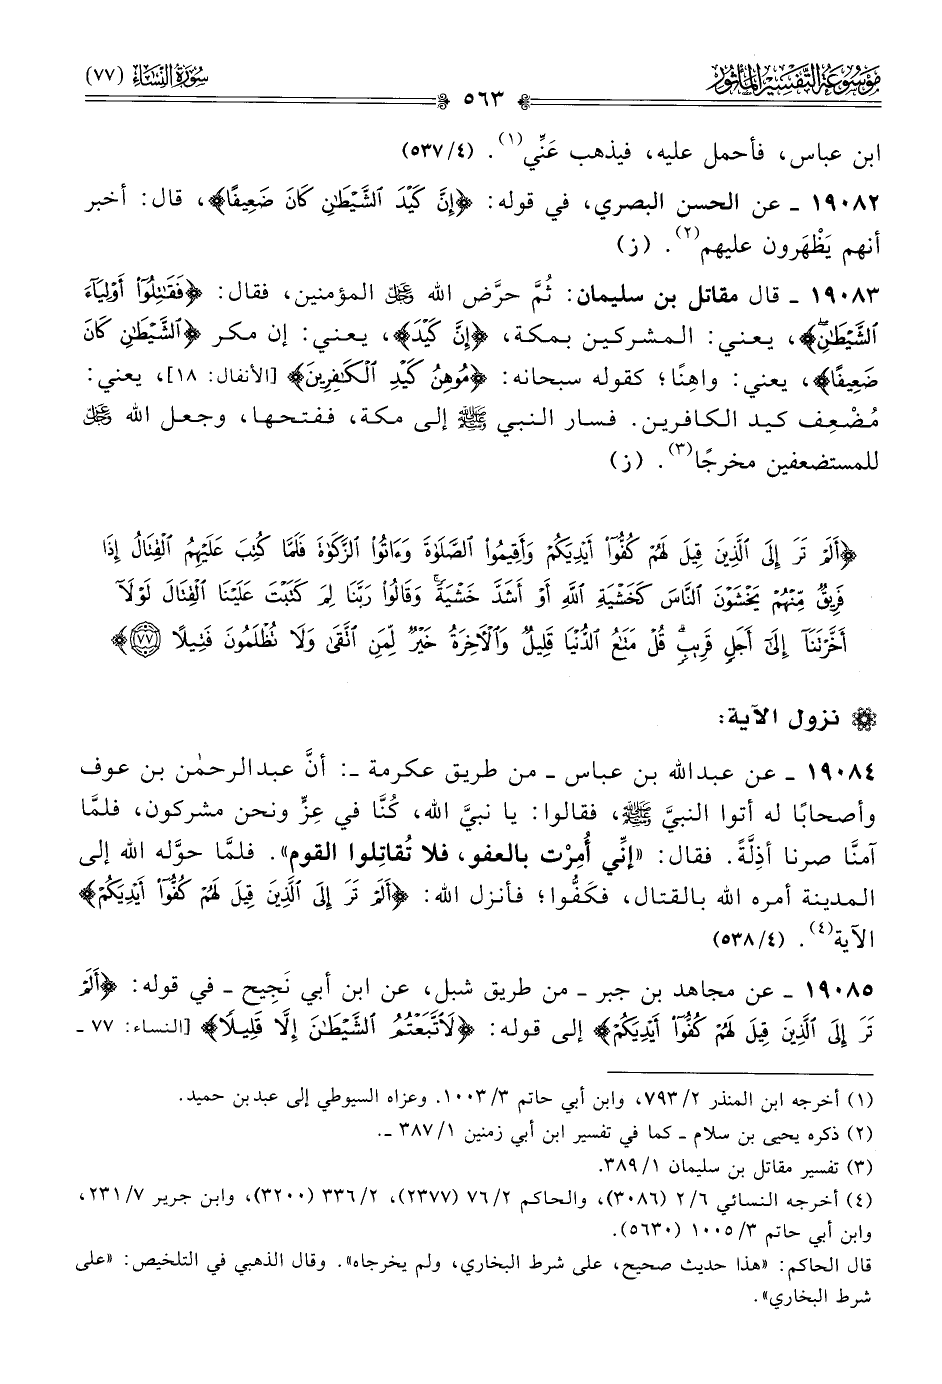 موسوعة التفسير المأثور
سورة النساء (٧٧)
٥٦٣
ابن عباس، فأحمل عليه، فيذهب عَنِّي(١). (٤/٥٣٧)
١٩٠٨٢ ـ عن الحسن البصري، في قوله: ﴿إِنَّ كَيْدَ الشَّيْطَانِ كَانَ ضَعِيفًا﴾، قال: أخبر
أنهم يَظْهَرون عليهم(٢). (ز)
١٩٠٨٣ ـ قال مقاتل بن سليمان: ثُمَّ حرَّض الله ﷿ المؤمنين، فقال: ﴿فَقَاتِلُوا أَوْلِيَاءَ
الشَّيْطَانِ﴾، يعني: المشركين بمكة، ﴿إِنَّ كَيْدَ﴾، يعني: إن مكر ﴿الشَّيْطَانِ كَانَ
ضَعِيفًا﴾، يعني: واهِنًا؛ كقوله سبحانه: ﴿مُوهِنُ كَيْدِ الْكَافِرِينَ﴾ [الأنفال: ١٨]، يعني:
مُضْعِف كيد الكافرين. فسار النبي ﷺ إلى مكة، ففتحها، وجعل الله ﷿
للمستضعفين مخرجًا(٣). (ز)
﴿أَلَمْ تَرَ إِلَى الَّذِينَ قِيلَ لَهُمْ كُفُّوا أَيْدِيَكُمْ وَأَقِيمُوا الصَّلَوٰةَ وَءَاتُوا الزَّكَوٰةَ فَلَمَّا كُتِبَ عَلَيْهِمُ الْقِتَالُ إِذَا
فَرِيقٌ مِّنْهُمْ يَخْشَوْنَ النَّاسَ كَخَشْيَةِ اللَّهِ أَوْ أَشَدَّ خَشْيَةً ۚ وَقَالُوا رَبَّنَا لِمَ كَتَبْتَ عَلَيْنَا الْقِتَالَ لَوْلَا
أَخَّرْتَنَا إِلَىٰ أَجَلٍ قَرِيبٍ ۗ قُلْ مَتَاعُ الدُّنْيَا قَلِيلٌ وَالْآخِرَةُ خَيْرٌ لِّمَنِ اتَّقَىٰ وَلَا تُظْلَمُونَ فَتِيلًا ٧٧﴾
نزول الآية:
١٩٠٨٤ ـ عن عبدالله بن عباس ـ من طريق عكرمة ـ: أنَّ عبدالرحمٰن بن عوف
وأصحابًا له أتوا النبيَّ ﷺ، فقالوا: يا نبيَّ الله، كُنَّا في عِزٍّ ونحن مشركون، فلمَّا
آمنَّا صرنا أذِلَّةً. فقال: «إنِّي أُمِرْت بالعفو، فلا تُقاتِلوا القوم». فلمَّا حوَّله الله إلى
المدينة أمره الله بالقتال، فكَفُّوا؛ فأنزل الله: ﴿أَلَمْ تَرَ إِلَى الَّذِينَ قِيلَ لَهُمْ كُفُّوا أَيْدِيَكُمْ﴾
الآية(٤). (٤/٥٣٨)
١٩٠٨٥ ـ عن مجاهد بن جبر ـ من طريق شبل، عن ابن أبي نَجيح ـ في قوله: ﴿أَلَمْ
تَرَ إِلَى الَّذِينَ قِيلَ لَهُمْ كُفُّوا أَيْدِيَكُمْ﴾ إلى قوله: ﴿لَاتَّبَعْتُمُ الشَّيْطَانَ إِلَّا قَلِيلًا﴾ [النساء: ٧٧ ـ
(١) أخرجه ابن المنذر ٢/ ٧٩٣، وابن أبي حاتم ٣/ ١٠٠٣. وعزاه السيوطي إلى عبد بن حميد.
(٢) ذكره يحيى بن سلام ـ كما في تفسير ابن أبي زمنين ١/ ٣٨٧ ـ.
(٣) تفسير مقاتل بن سليمان ١/ ٣٨٩.
(٤) أخرجه النسائي ٦/ ٢ (٣٠٨٦)، والحاكم ٢/ ٧٦ (٢٣٧٧)، ٢/ ٣٣٦ (٣٢٠٠)، وابن جرير ٧/ ٢٣١،
وابن أبي حاتم ٣/ ١٠٠٥ (٥٦٣٠).
قال الحاكم: «هذا حديث صحيح، على شرط البخاري، ولم يخرجاه». وقال الذهبي في التلخيص: «على
شرط البخاري».